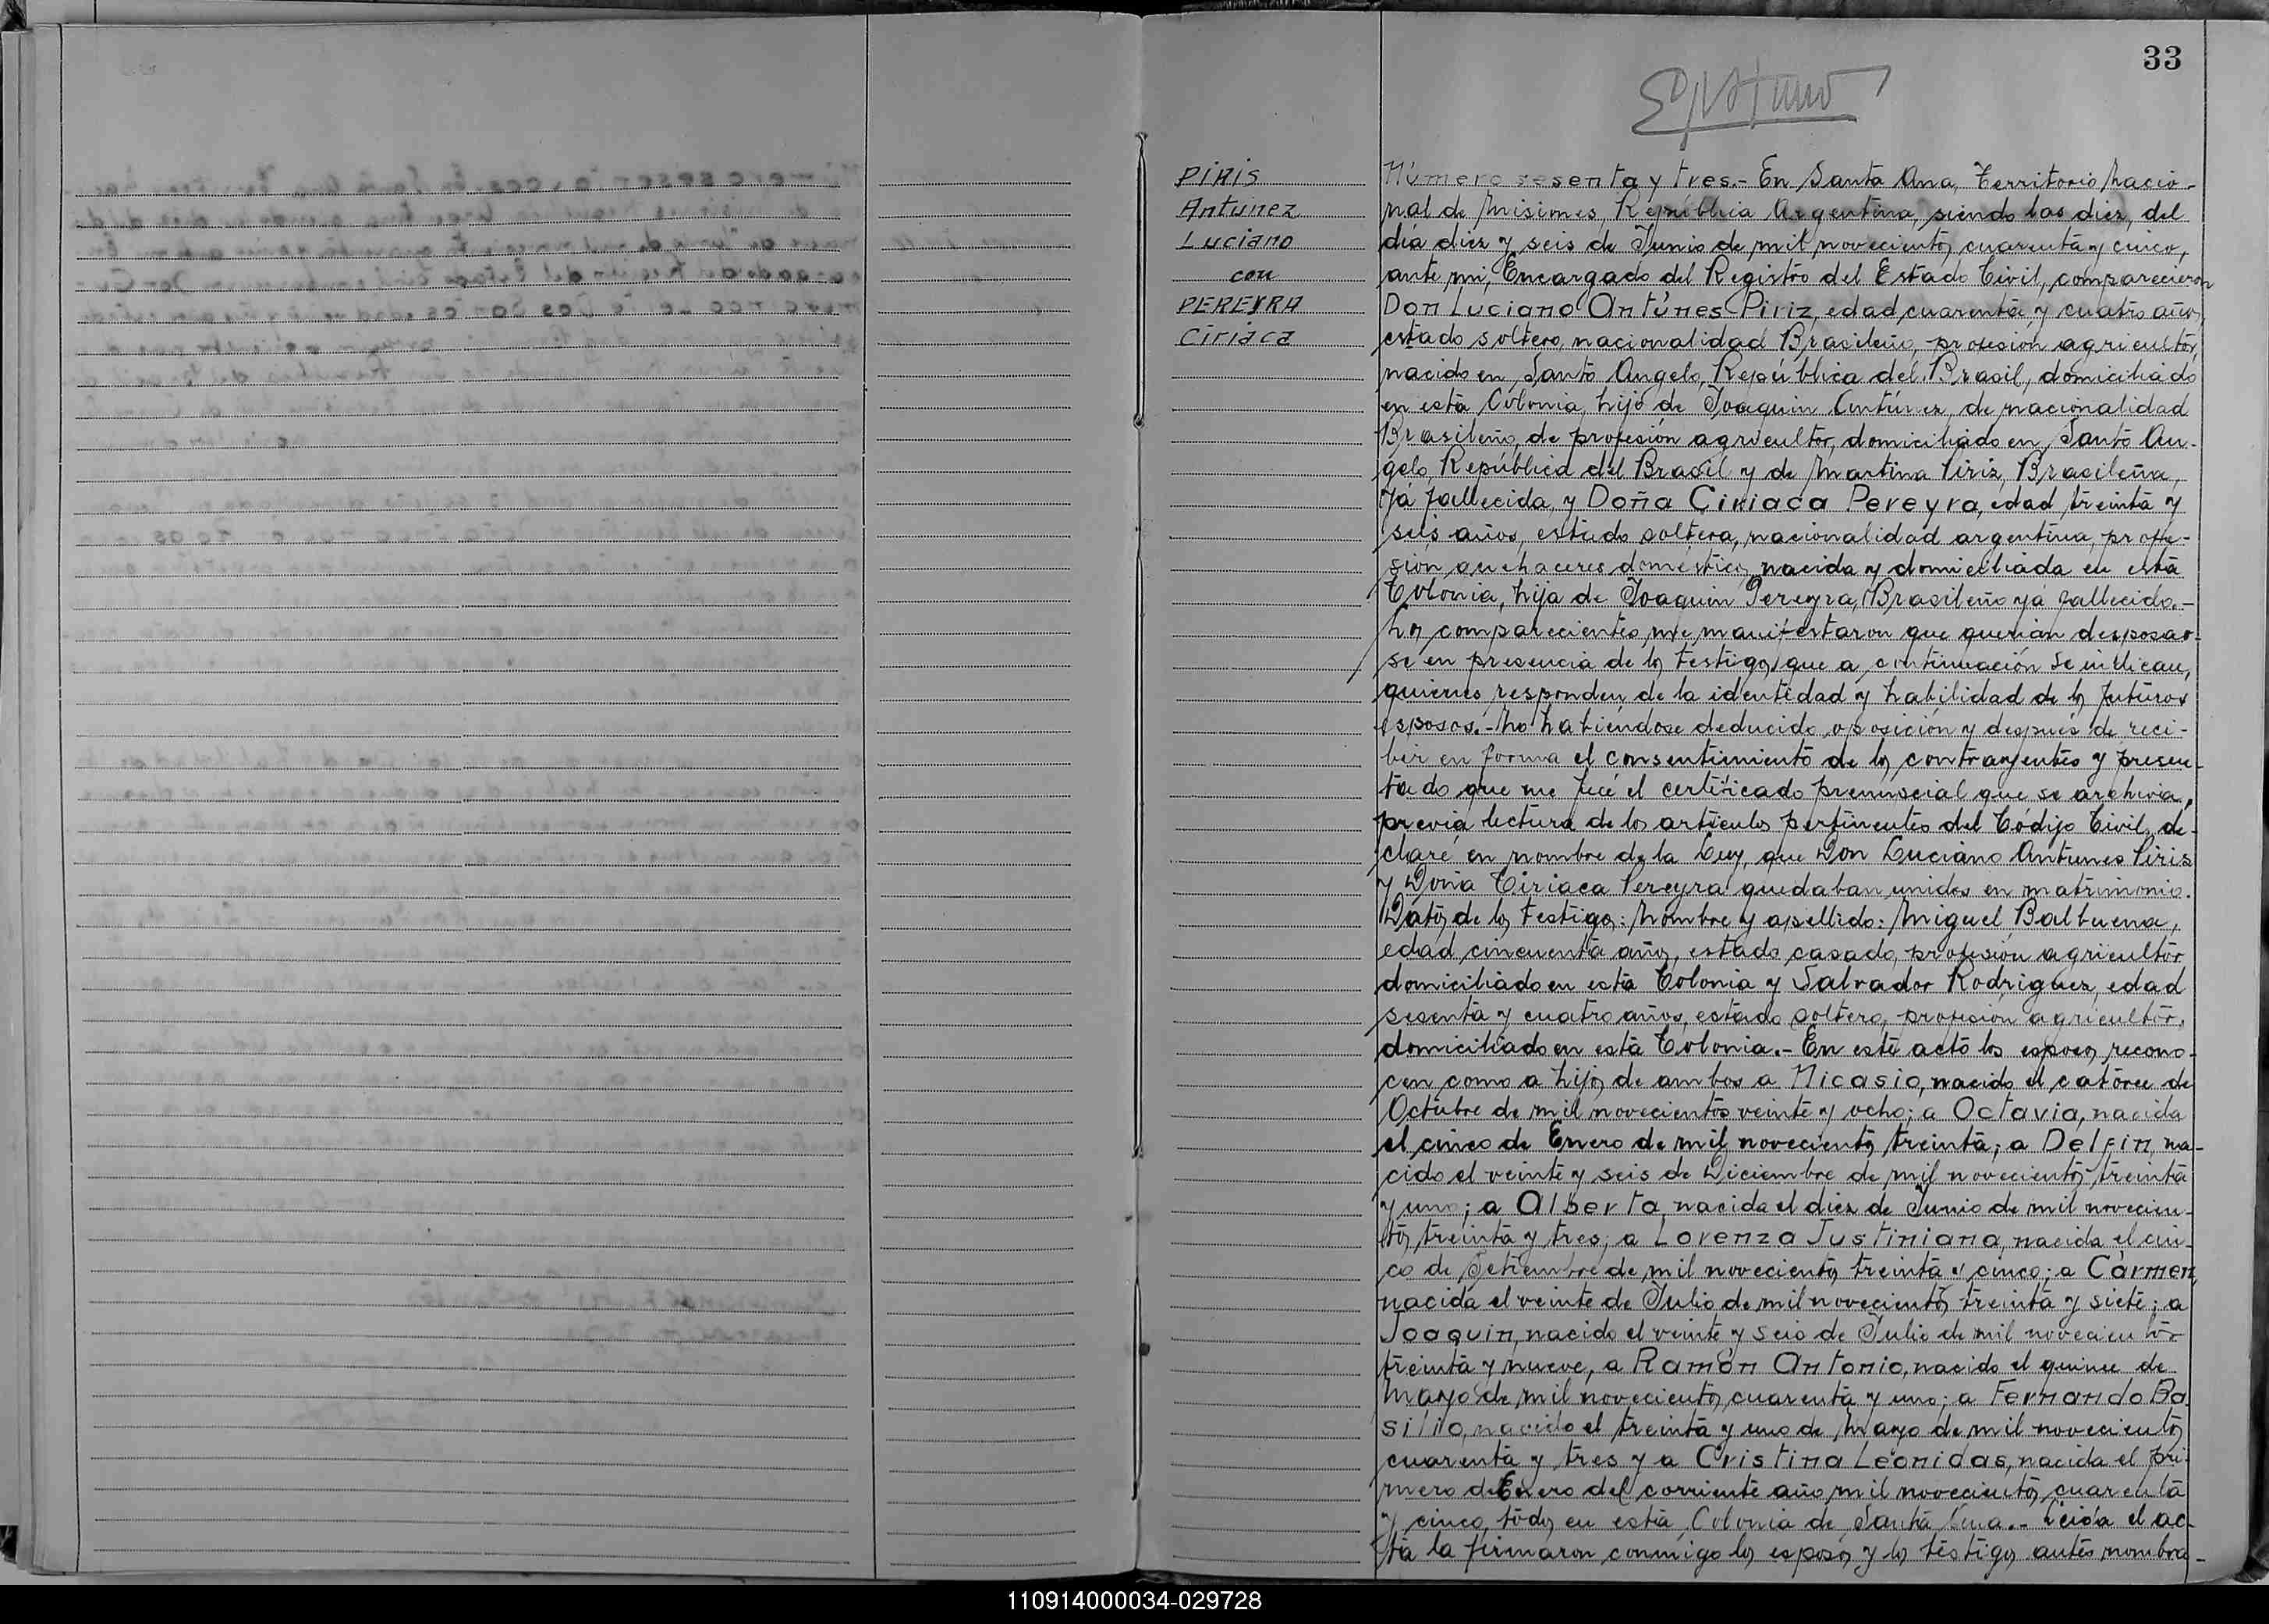 33
PIRIS
Antunez
Luciano
con
PEREYRA
Ciriaca
Número sesenta y tres.- En Santa Ana, Territorio Nacio-
nal de Misiones, República Argentina, siendo las diez, del
día diez y seis de Junio de mil novecientos cuarenta y cinco,
ante mi, Encargado del Registro del Estado Civil, comparecieron
Don Luciano Antúnes Piriz, edad cuarenta y cuatro años,
estado soltero, nacionalidad Brasileño, profesión agricultor,
nacido en Santo Angelo, República del Brasil, domiciliado
en esta Colonia, hijo de Joaquin Antúnez, de nacionalidad
Brasileño, de profesión agricultor, domiciliado en Santo An-
gelo, República del Brasil y de Martina Piriz, Brasileña,
ya fallecida, y Doña Ciriaca Pereyra, edad treinta y
seis años, estado soltera, nacionalidad argentina, profe-
sión quehaceres domésticos, nacida y domiciliada en esta
Colonia, hija de Joaquin Pereyra, Brasileño ya fallecido.-
Los comparecientes, me manifestaron que querian desposar-
se en presencia de los testigos que a continuación se indican,
quienes responden de la identidad y habilidad de los futuros
esposos.- No habiéndose deducido oposición y después de reci-
bir en forma el consentimiento de los contrayentes y presen-
tado que me fué el certificado prenupcial que se archiva,
previa lectura de los articulos pertinentes del Código Civil, de-
claré en nombre de la Ley, que Don Luciano Antunes Piris
y Doña Ciriaca Pereyra quedaban unidos en matrimonio.
Datos de los testigos: Nombre y apellido: Miguel Balbuena,
edad cincuenta años, estado casado, profesión agricultor
domiciliado en esta Colonia y Salvador Rodriguez, edad
sesenta y cuatro años, estado soltero, profesión agricultor,
domiciliado en esta Colonia.- En este acto los esposos recono-
cen como a hijos de ambos a Nicasio, nacido el catorce de
Octubre de mil novecientos veinte y ocho; a Octavia, nacida
el cinco de Enero de mil novecientos treinta; a Delfin, na-
cido el veinte y seis de Diciembre de mil novecientos treinta
y uno; a Alberta, nacida el diez de Junio de mil novecien-
tos treinta y tres; a Lorenza Justiniana, nacida el cin-
co de Setiembre de mil novecientos treinta y cinco; a Cármen,
nacida el veinte de Julio de mil novecientos treinta y siete; a
Joaquin, nacido el veinte y seis de Julio de mil novecientos
treinta y nueve, a Ramón Antonio, nacido el quince de
Mayo de mil novecientos cuarenta y uno; a Fernando Ba
silio, nacido el treinta y uno de Mayo de mil novecientos
cuarenta y tres y a Cristina Leonidas, nacida el pri-
mero de Enero del corriente año mil novecientos cuarenta
y cinco, todos en esta Colonia de Santa Ana.- Leida el ac-
ta la firmaron conmigo los esposos y los testigos antes nombra-
110914000034-029728